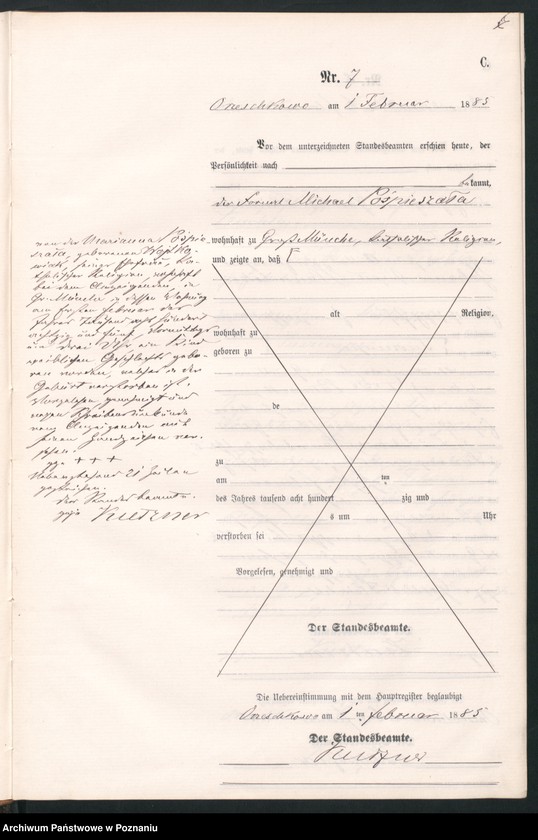 C.
Nr. 7
am 1 Februar 1885
Vor dem unterzeichneten Standesbeamten erschien heute, der
Persönlichkeit nach
bekannt,
der Fornal Michael Pośpieszała
wohnhaft zu Groß Münche, katholischer Religion,
und zeigte an, daß
von der Marianna Pośpie-
szała, geborenen
seiner Ehefrau, ka-
tholischer Religion, wohnhaft
bei dem Anzeigenden, in
Gr. Münche in dessen Wohnung
am ersten Februar des
Jahres tausend acht hundert
achtzig und fünf, Vormittags
um drei Uhr ein Kind
weiblichen Geschlechts gebo-
ren worden, welches in der
Geburt verstorben ist.
Vorgelesen, genehmigt und
wegen Schreibensunkunde
vom Anzeigenden mit
seinen Handzeichen ver-
sehen.
+++
21 Zeilen
gestrichen.
Der Standesbeamte.
Kutzner
alt Religion,
wohnhaft zu
geboren zu
de
zu
am ten
des Jahres tausend acht hundert zig und
s um Uhr
verstorben sei
Vorgelesen, genehmigt und
Der Standesbeamte.
Die Uebereinstimmung mit dem Hauptregister beglaubigt
am 1 ten Februar 1885
Der Standesbeamte.
Kutzner
Archiwum Państwowe w Poznaniu